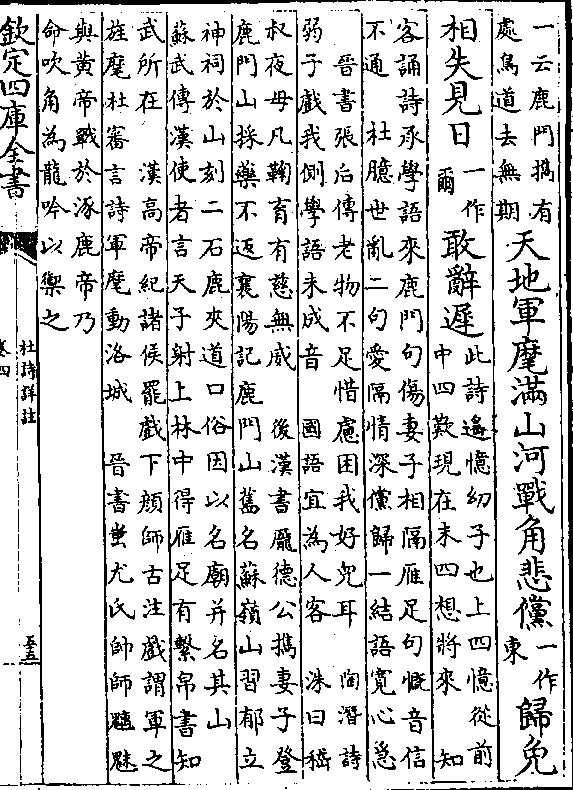 一云鹿門擕有
處鳥道去無期
天地軍麾滿山河戰角悲儻
一作
東
歸免
相失見日
一作
爾
敢辭遲
此詩遙憶幼子也上四憶從前
中四歎現在末四想將來　知
客誦詩承學語來鹿門句傷妻子相隔雁足句慨音信
不通　杜臆世亂二句愛隔情深儻歸一結語寛心爲
晉書張后傳老物不足惜慮困我好兒耳　陶潛詩
弱子戲我側學語未成音　國語宜為人客　洙曰嵇
叔夜母凡鞠育有慈無威　後漢書龐德公擕妻子登
鹿門山採藥不返襄陽記鹿門山舊名蘇嶺山習郁立
神祠於山刻二石鹿夾道口俗因以名廟并名其山
蘇武傳漢使者言天子射上林中得雁足有繫帛書知
武所在　漢高帝紀諸侯罷戲下顔師古注戲謂軍之
旌麾杜審言詩軍麾動洛城　晉書蚩尤氏帥師魑魅
與黄帝戰於涿鹿帝乃
命吹角為龍吟以禦之
欽定四庫全書
杜詩詳註
卷四